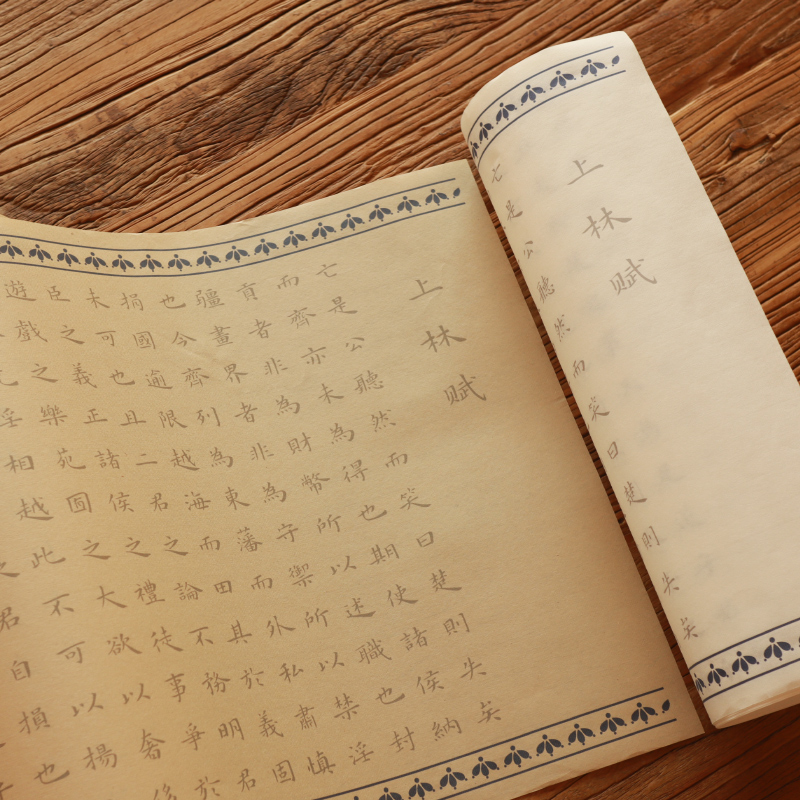 上林赋
亡是公聽然而笑曰楚則失矣
上林赋
亡是公聽然而笑曰楚則失矣
而齊亦未為得也期使諸侯納
貢者非為財幣所以述職也封
疆畫界者非為守禦所以禁淫
也今齊列為東藩而外私肅慎
捐國逾限越海而田其於義固
未可也且二君之論不務明君
臣之義正諸侯之禮徒事爭於
遊戲之樂苑囿之大欲以奢
淫相越此不可以揚
君自損也